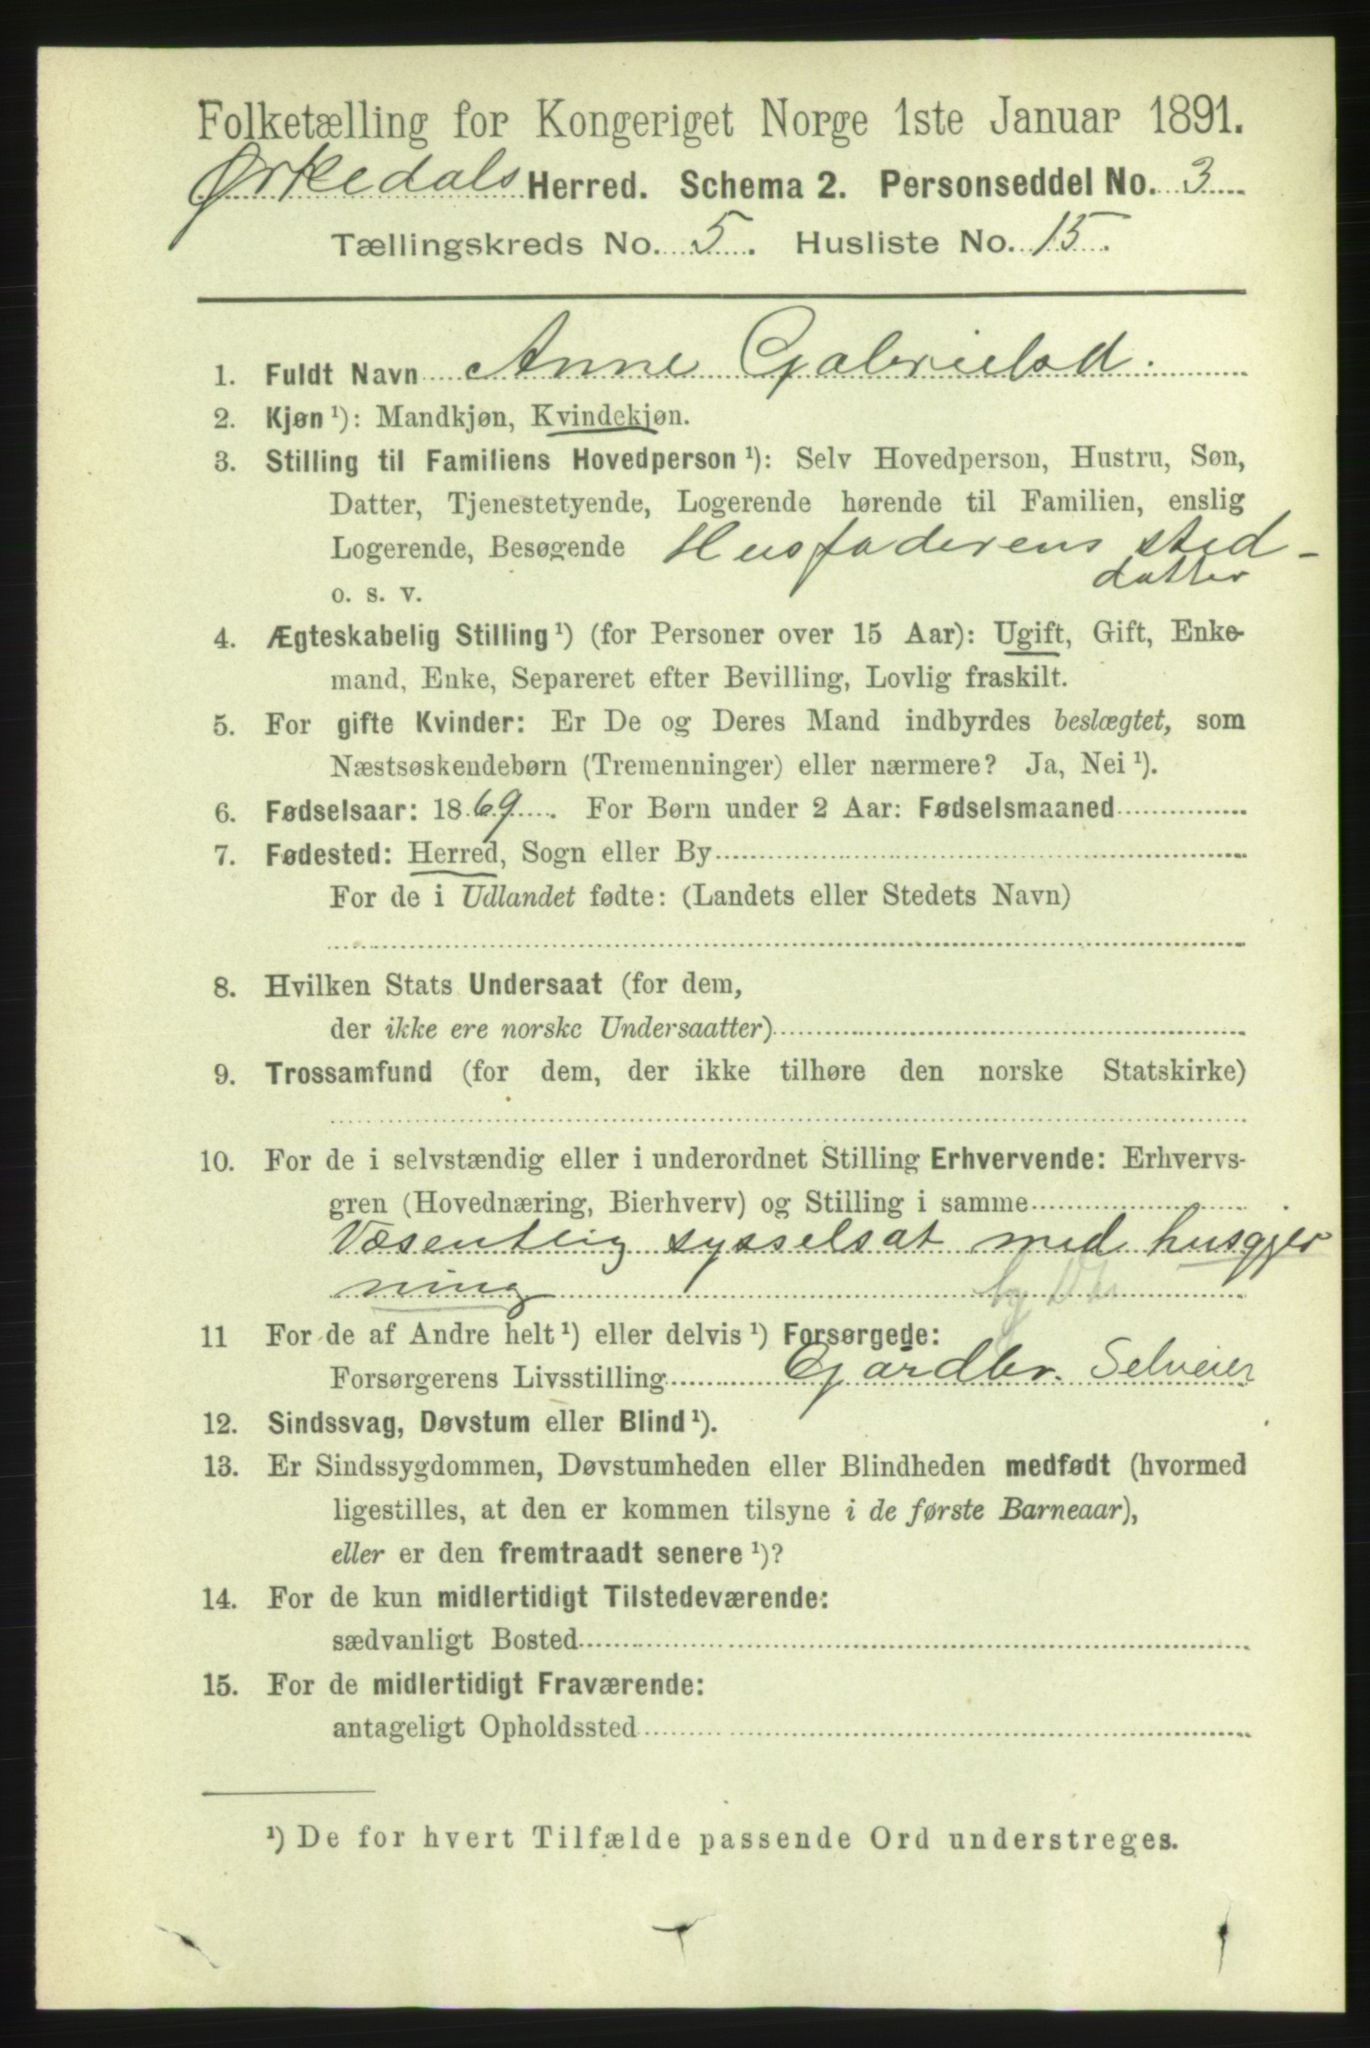 Folketælling for Kongeriget Norge 1ste Januar 1891.
Ørkedals Herred. Schema 2. Personseddel No. 3
Tællingskreds No. 5. Husliste No. 15.
1. Fuldt Navn Anne Gabrielsd.
2. Kjøn ¹): Mandkjøn, Kvindekjøn.
3. Stilling til Familiens Hovedperson ¹): Selv Hovedperson, Hustru, Søn,
Datter, Tjenestetyende, Logerende hørende til Familien, enslig
Logerende, Besøgende Husfaderens sted-
datter
o. s. v.
4. Ægteskabelig Stilling ¹) (for Personer over 15 Aar): Ugift, Gift, Enke-
mand, Enke, Separeret efter Bevilling, Lovlig fraskilt.
5. For gifte Kvinder: Er De og Deres Mand indbyrdes beslægtet, som
Næstsøskendebørn (Tremenninger) eller nærmere? Ja, Nei ¹).
6. Fødselsaar: 1869. For Børn under 2 Aar: Fødselsmaaned
7. Fødested: Herred, Sogn eller By
For de i Udlandet fødte: (Landets eller Stedets Navn)
8. Hvilken Stats Undersaat (for dem,
der ikke ere norske Undersaatter)
9. Trossamfund (for dem, der ikke tilhøre den norske Statskirke)
10. For de i selvstændig eller i underordnet Stilling Erhvervende: Erhvervs-
gren (Hovednæring, Bierhverv) og Stilling i samme
Væsentlig sysselsat med husgjer
ning
11 For de af Andre helt ¹) eller delvis ¹) Forsørgede:
Forsørgerens Livsstilling Gardbr. Selveier
12. Sindssvag, Døvstum eller Blind ¹).
13. Er Sindssygdommen, Døvstumheden eller Blindheden medfødt (hvormed
ligestilles, at den er kommen tilsyne i de første Barneaar),
eller er den fremtraadt senere ¹)?
14. For de kun midlertidigt Tilstedeværende:
sædvanligt Bosted
15. For de midlertidigt Fraværende:
antageligt Opholdssted
¹) De for hvert Tilfælde passende Ord understreges.